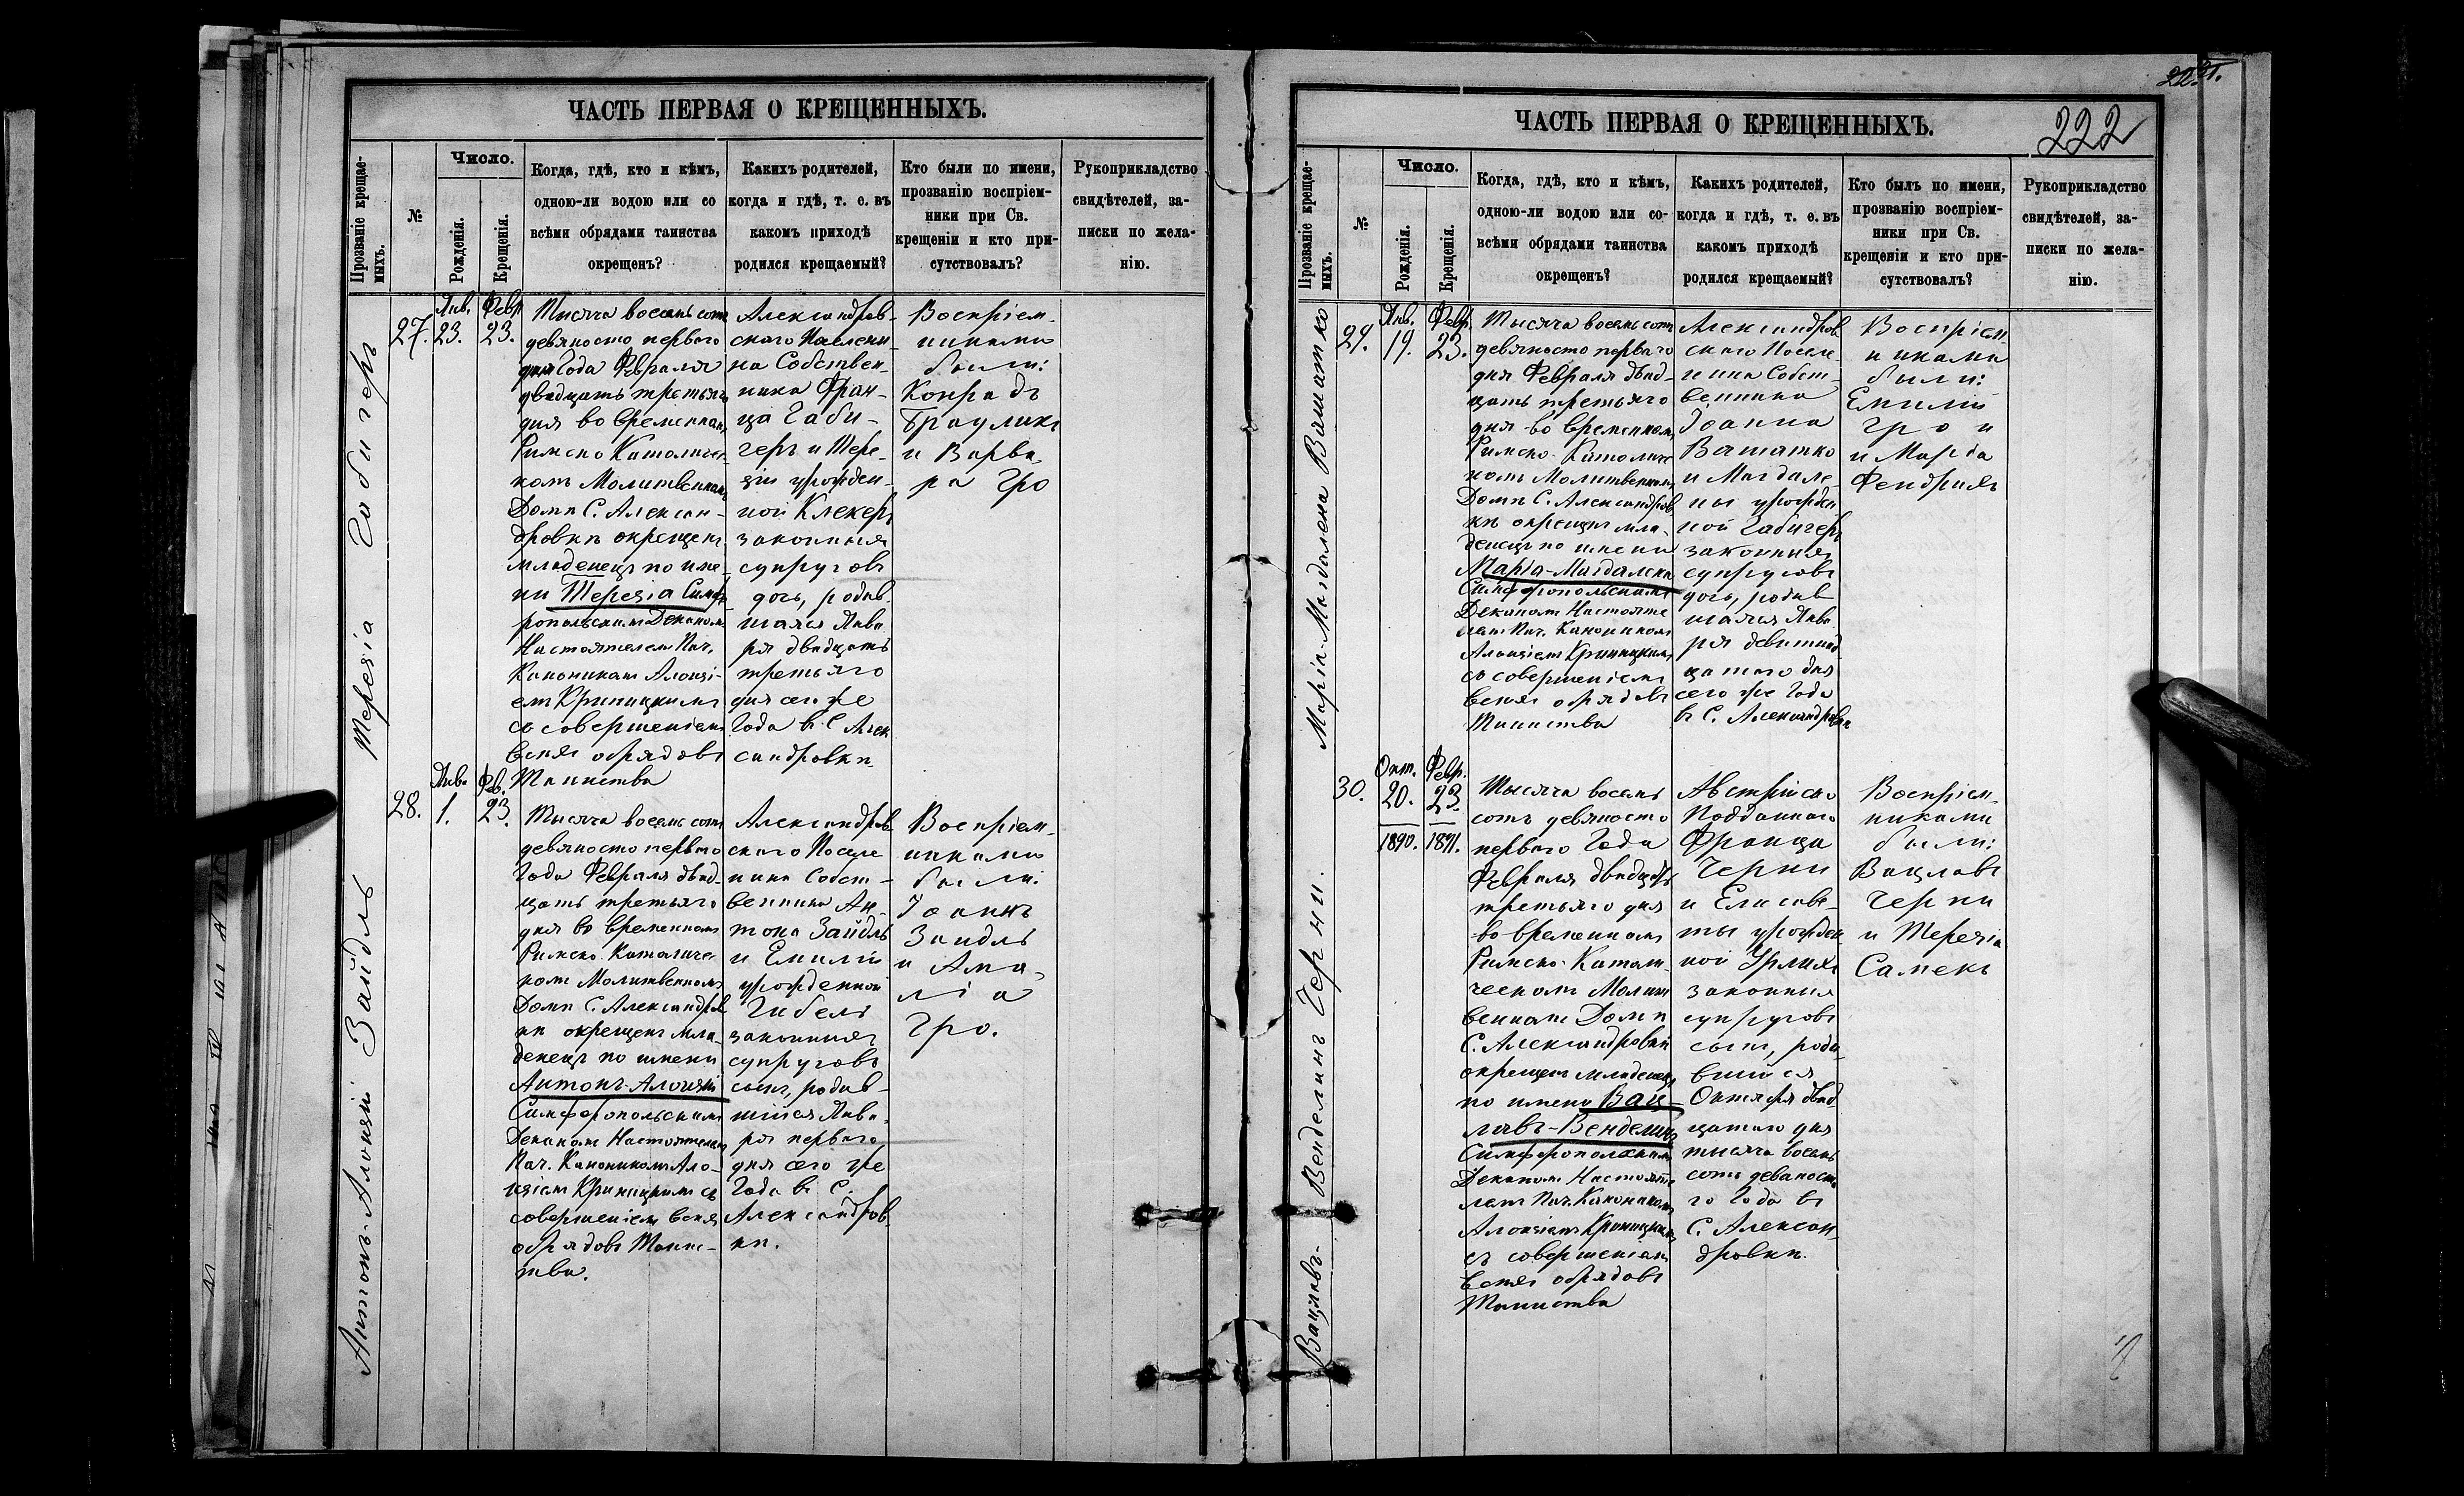 ЧАСТЬ ПЕРВАЯ О КРЕЩЕННЫХЪ.
Прозваніе крещае-
мыхъ.
№
Число.
Рожденія.
Крещенія.
Когда, гдѣ, кто и кѣмъ,
одною-ли водою или со
всѣми обрядами таинства
окрещенъ?
Какихъ родителей,
когда и гдѣ, т. е. въ
какомъ приходѣ
родился крещаемый?
Кто были по имени,
прозванію воспріем-
ники при Св.
крещеніи и кто при-
сутствовалъ?
Рукоприкладство
свидѣтелей, за-
писки по жела-
нію.
Терезія Габигеръ
27.
Янв.
23.
Февр
23.
Тысяча восемь сотъ
девяносто перваго
Года Февраля
двадцать третьяго
дня во временномъ
Римско Католичес
комъ Молитвенномъ
Домѣ С. Алексан-
дровкѣ окрещенъ
младенецъ по име-
ни Терезія Симфе
ропольскимъ Деканомъ
Настоятелемъ Поч.
Каноникомъ Алоизі-
емъ Криницкимъ
съ совершеніемъ
всехъ обрядовъ
Таинства
Александров-
скаго Поселени-
на Собствен-
ника Фран-
ца Габи-
геръ и Тере-
зіи урожден-
ной Клекеръ
законныя
супруговъ
дочь, родив
шаяся Янва
ря двадцать
третьяго
дня сего же
Года въ С. Алек
сандровкѣ
Воспріем-
никами
были:
Конрадъ
Браулихъ
и Варва
ра Гро
Антонъ-Алоизій Зайдль
28.
Янв.
1.
Фев.
23.
Тысяча восемь сотъ
девяносто перваго
Года Февраля двад-
цать третьяго
дня во временномъ
Римско-Католиче
комъ Молитвенномъ
Домѣ С. Александров
кѣ окрещенъ мла-
денецъ по имени
Антонъ-Алоизій
Симферопольскимъ
Деканомъ Настоятелемъ
Поч. Каноникомъ Ало-
изіемъ Криницкимъ съ
совершеніемъ всехъ
обрядовъ Таинс-
тва.
Александров-
скаго Поселе
нина Собст-
венника Ан-
тона Зайдль
и Емиліи
урожденной
Гибель
законныхъ
супруговъ
сынъ, родив-
шійся Янва-
ря перваго
дня сего же
Года въ С.
Александров
кѣ.
Воспріем-
никами
были:
Іоаннъ
Зайдль
и Ама-
лія
Гро.
222
ЧАСТЬ ПЕРВАЯ О КРЕЩЕННЫХЪ.
Прозваніе крещае-
мыхъ.
№
Число.
Рожденія.
Крещенія.
Когда, гдѣ, кто и кѣмъ,
одною-ли водою или со-
всѣми обрядами таинства
окрещенъ?
Какихъ родителей,
когда и гдѣ, т. е. въ
какомъ приходѣ
родился крещаемый?
Кто былъ по имени,
прозванію воспріем-
ники при Св.
крещеніи и кто при-
сутствовалъ?
Рукоприкладство
свидѣтелей, за-
писки по жела-
нію.
Марія-Магдалена Ваматко
29.
Янв.
19.
Февр.
23.
Тысяча восемь сотъ
девяносто перваго
дня Февраля двад-
цать третьяго
дня во временномъ
Римско-Католиче
комъ Молитвенномъ
Домѣ С. Александров
кѣ окрещенъ мла-
денецъ по имени
Марія-Магдалена
Симферопольскимъ
Деканомъ Настояте
лемъ Поч. Каноникомъ
Алоизіемъ Криницкимъ
съ совершеніемъ
всехъ обрядовъ
Таинства
Александров
скаго Поселе-
нина Собст-
венника
Іоанна
Ваматко
и Магдале-
ны урожден
ной Габигеръ
законныхъ
супруговъ
дочь, родив
шаяся Янва
ря девятнад-
цатаго дня
сего же Года
въ С. Александровкѣ
Воспріем-
никами
были:
Емилій
Гро и
и Марія
Фендрихъ
Вацлавъ-Венделинъ Черни.
30.
Окт.
20.
1890.
Февр.
23
1891.
Тысяча восемь
сотъ девяносто
перваго Года
Февраля двадцать
третьяго дня
во временномъ
Римско-Католи-
ческомъ Молит
венномъ Домѣ
С. Александровки
окрещенъ младенецъ
по имени Вац-
лавъ-Венделинъ
Симферопольскимъ
Деканомъ Настояте
лемъ Поч. Каноникомъ
Алоизіемъ Криницкимъ
съ совершеніемъ
всехъ обрядовъ
Таинства
Австрійско
Подданнаго
Франца
Черни
и Елисаве-
ты урожден
ной Урлихъ
законныхъ
супруговъ
сынъ, роди-
вшійся
Октября двад
цатаго дня
тысяча восемь
сотъ девяносто
го Года въ
С. Алексан-
дровкѣ.
Воспріем-
никами
были:
Вацлавъ
Черни
и Терезія
Самекъ